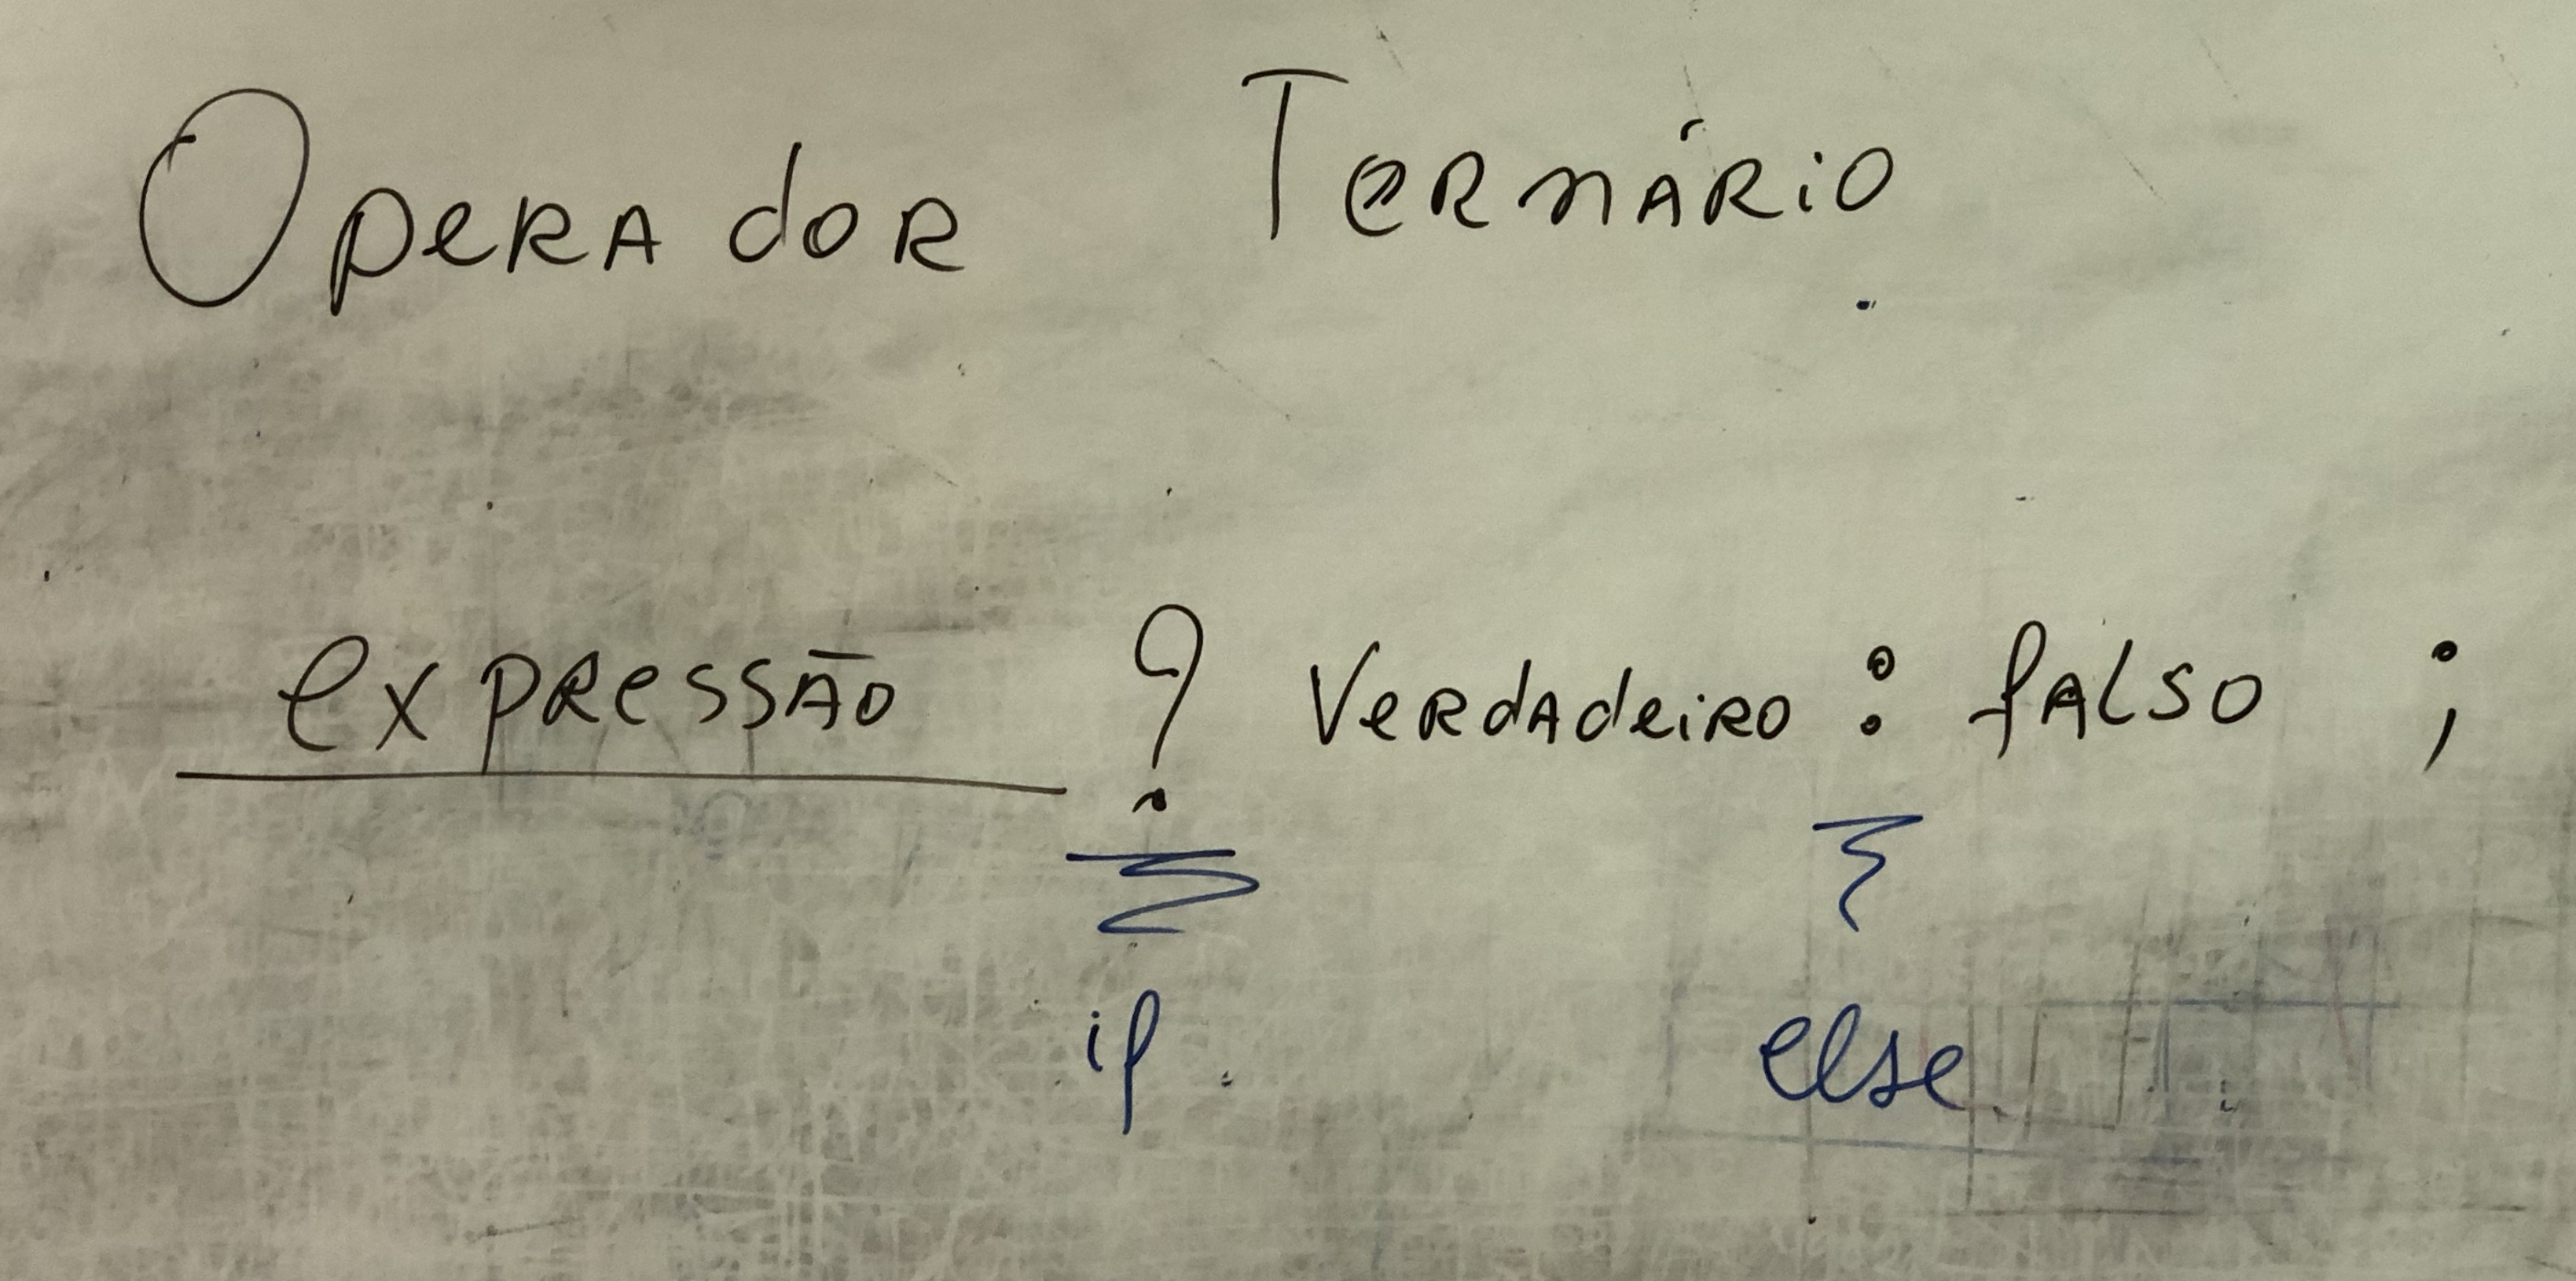 Operador Ternário
expressão ? Verdadeiro : falso ;
if else